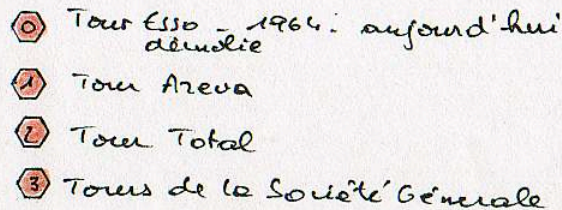 0 Tour Esso - 1964 : aujourd'hui
démolie
1 Tour Areva
2 Tour Total
3 Tours de la Société Génerale